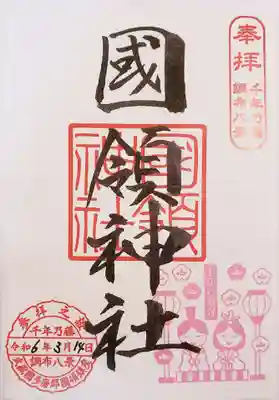 奉拝
千年乃藤
調布八景
國領神社
國領
神社
参拝之証
千年乃藤
令和6年3月14日
調布八景